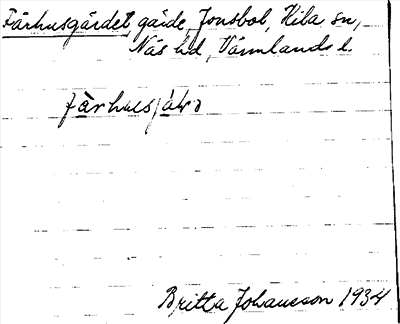 Fårhusgärdet gärde, Jonsbol, Kila sn,
Näs hd, Värmlands l.
Britta Johansson 1934